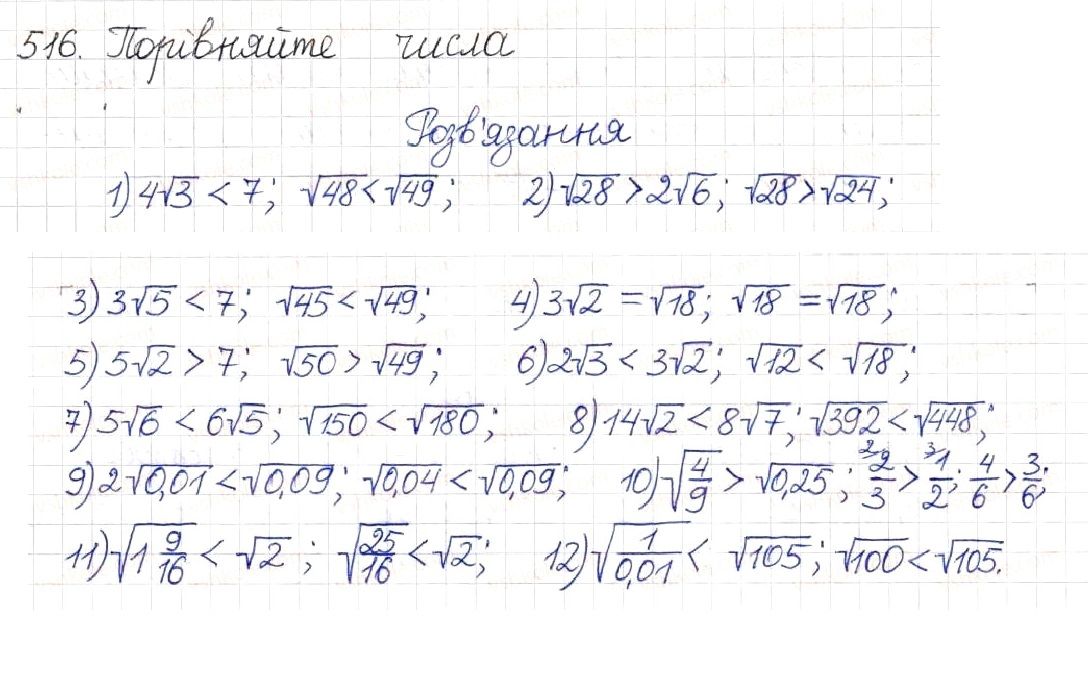 516. Порівняйте числа
Розв'язання
1) 4√3 < 7; √48 < √49; 2) √28 > 2√6; √28 > √24;
3) 3√5 < 7; √45 < √49; 4) 3√2 = √18; √18 = √18;
5) 5√2 > 7; √50 > √49; 6) 2√3 < 3√2; √12 < √18;
7) 5√6 < 6√5; √150 < √180; 8) 14√2 < 8√7; √392 < √448;
9) 2√0,01 < √0,09; √0,04 < √0,09; 10) √(4/9) > √0,25; ²⁾2/3 > ³⁾1/2; 4/6 > 3/6;
11) √(1 9/16) < √2; √(25/16) < √2; 12) √(1/0,01) < √105; √100 < √105.